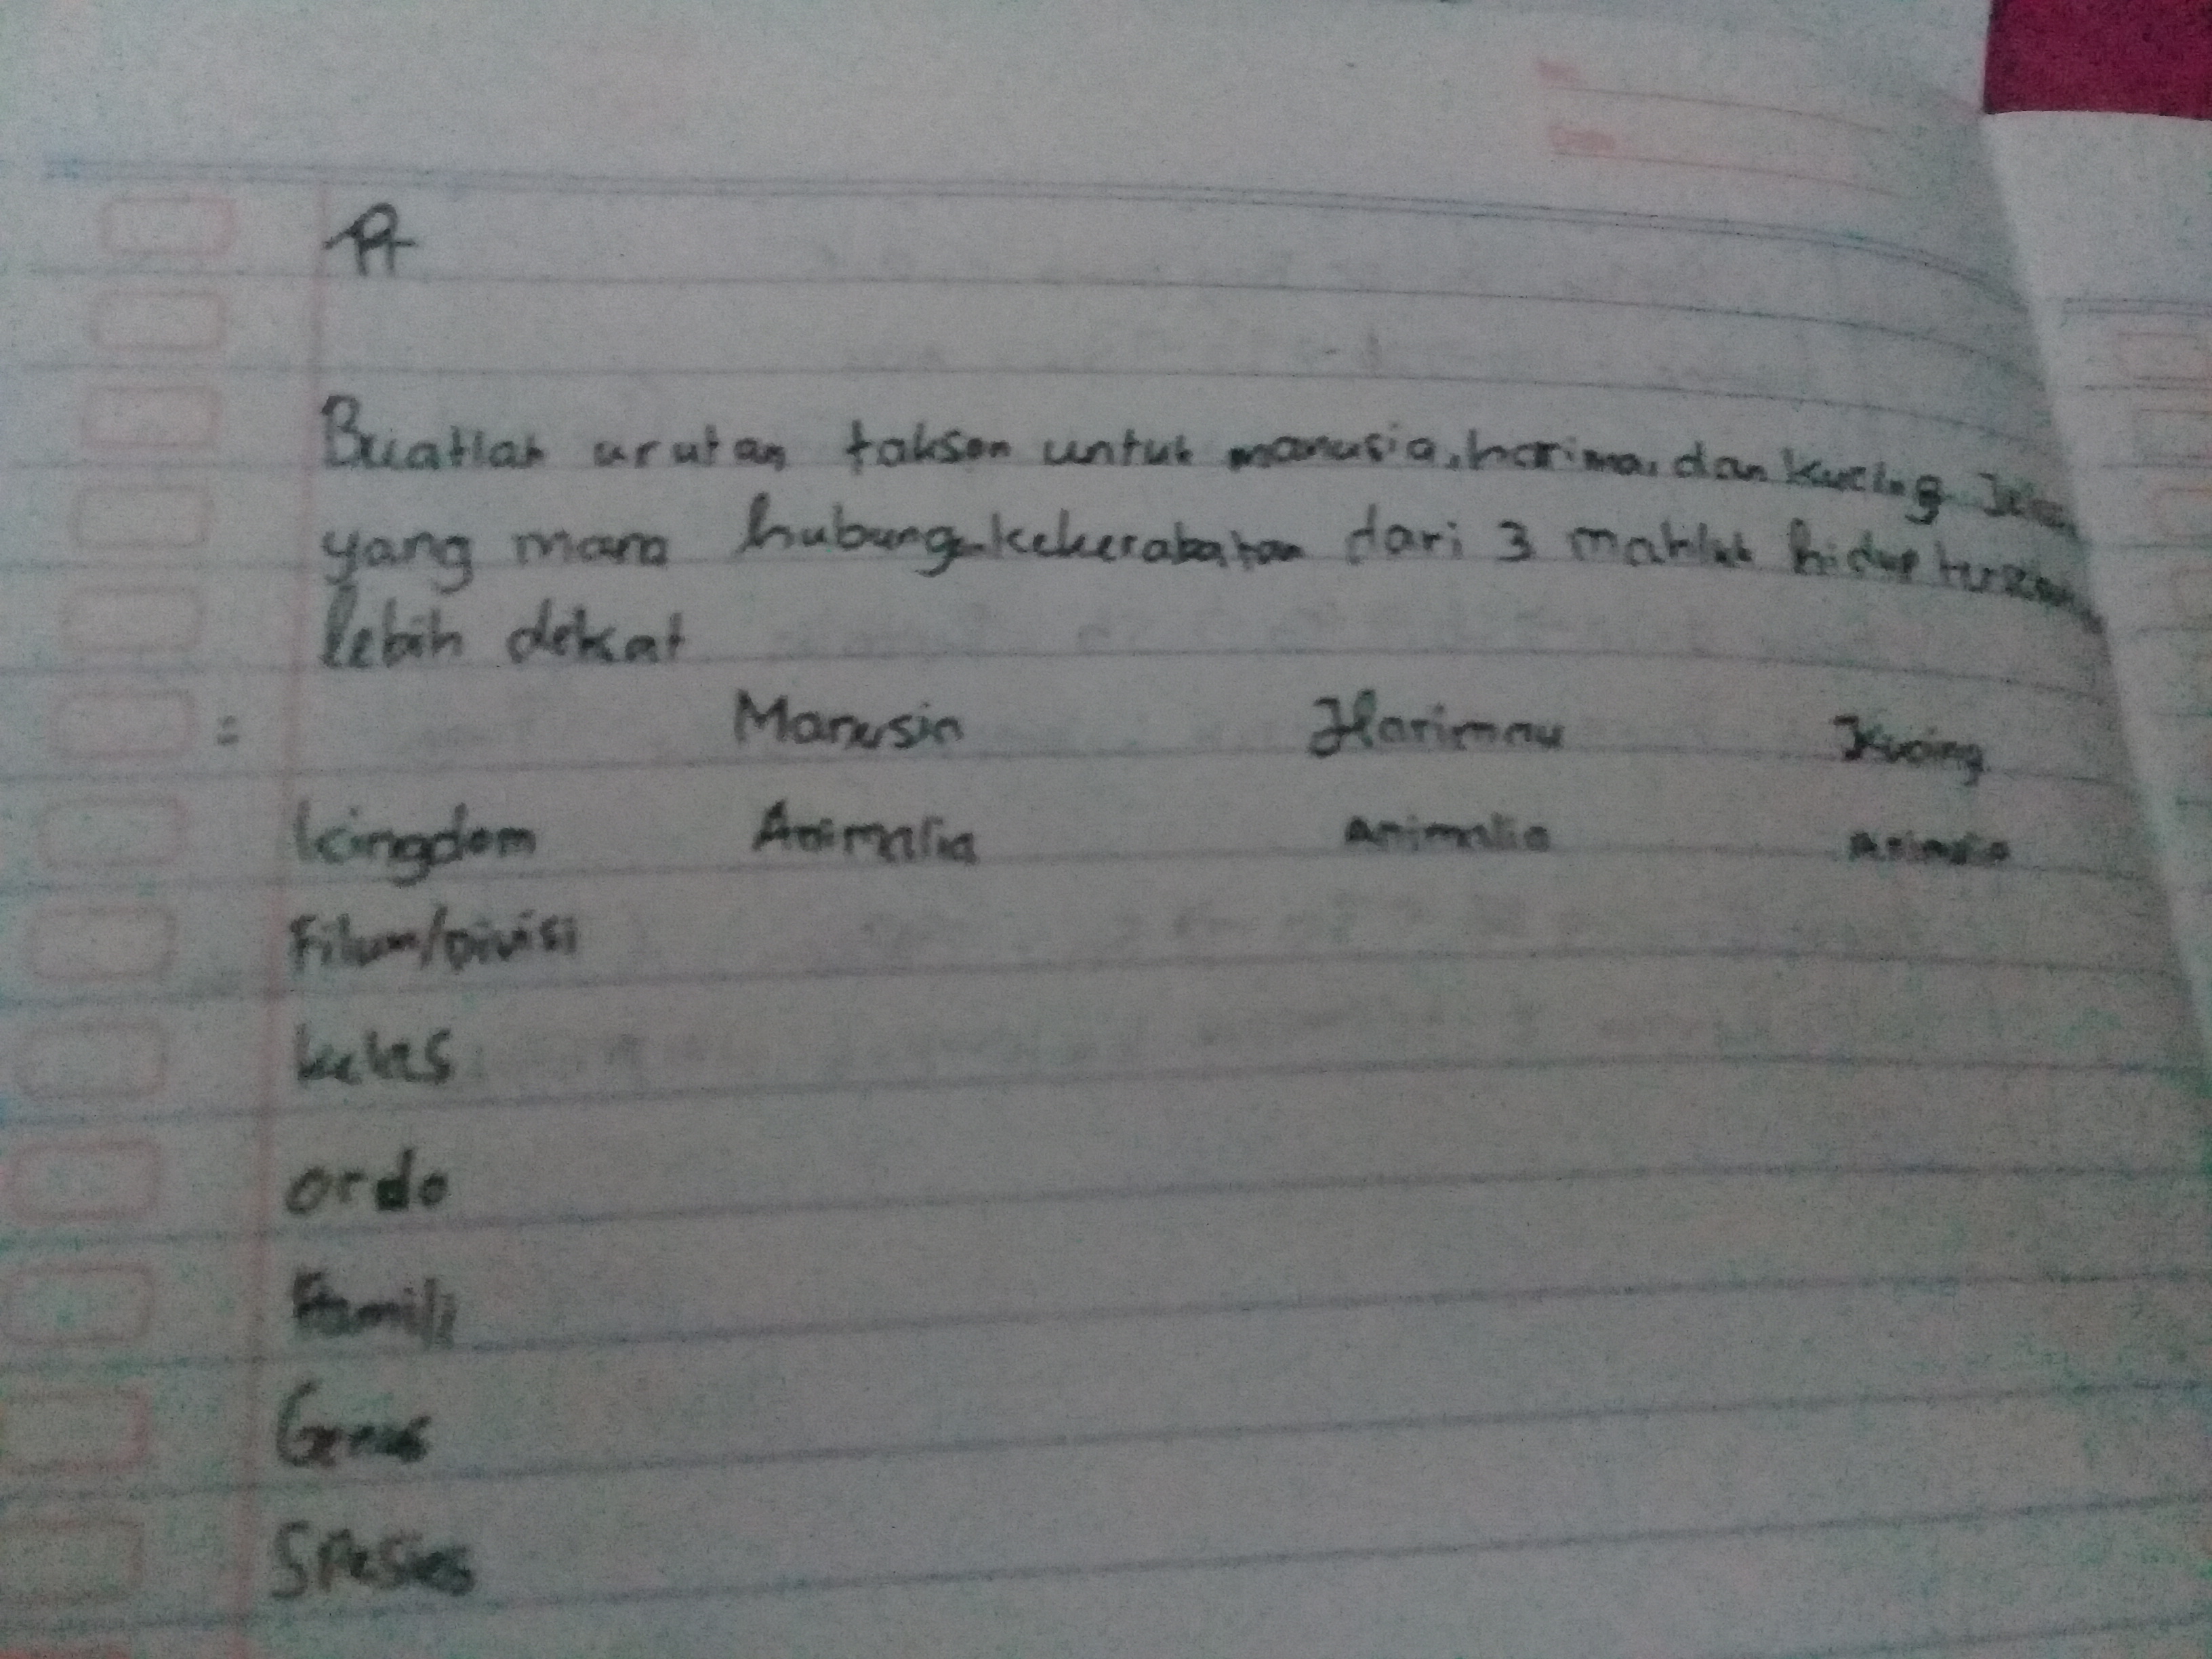 Buatlah urutan takson untuk manusia, harimau dan kucing
yang mana hubungan kekerabatan dari 3 mahluk hidup
lebih dekat
= Manusia Harimau Kucing
kingdom Animalia animalia animalia
Filum/Divisi
kelas
ordo
Famili
Genus
Spesies